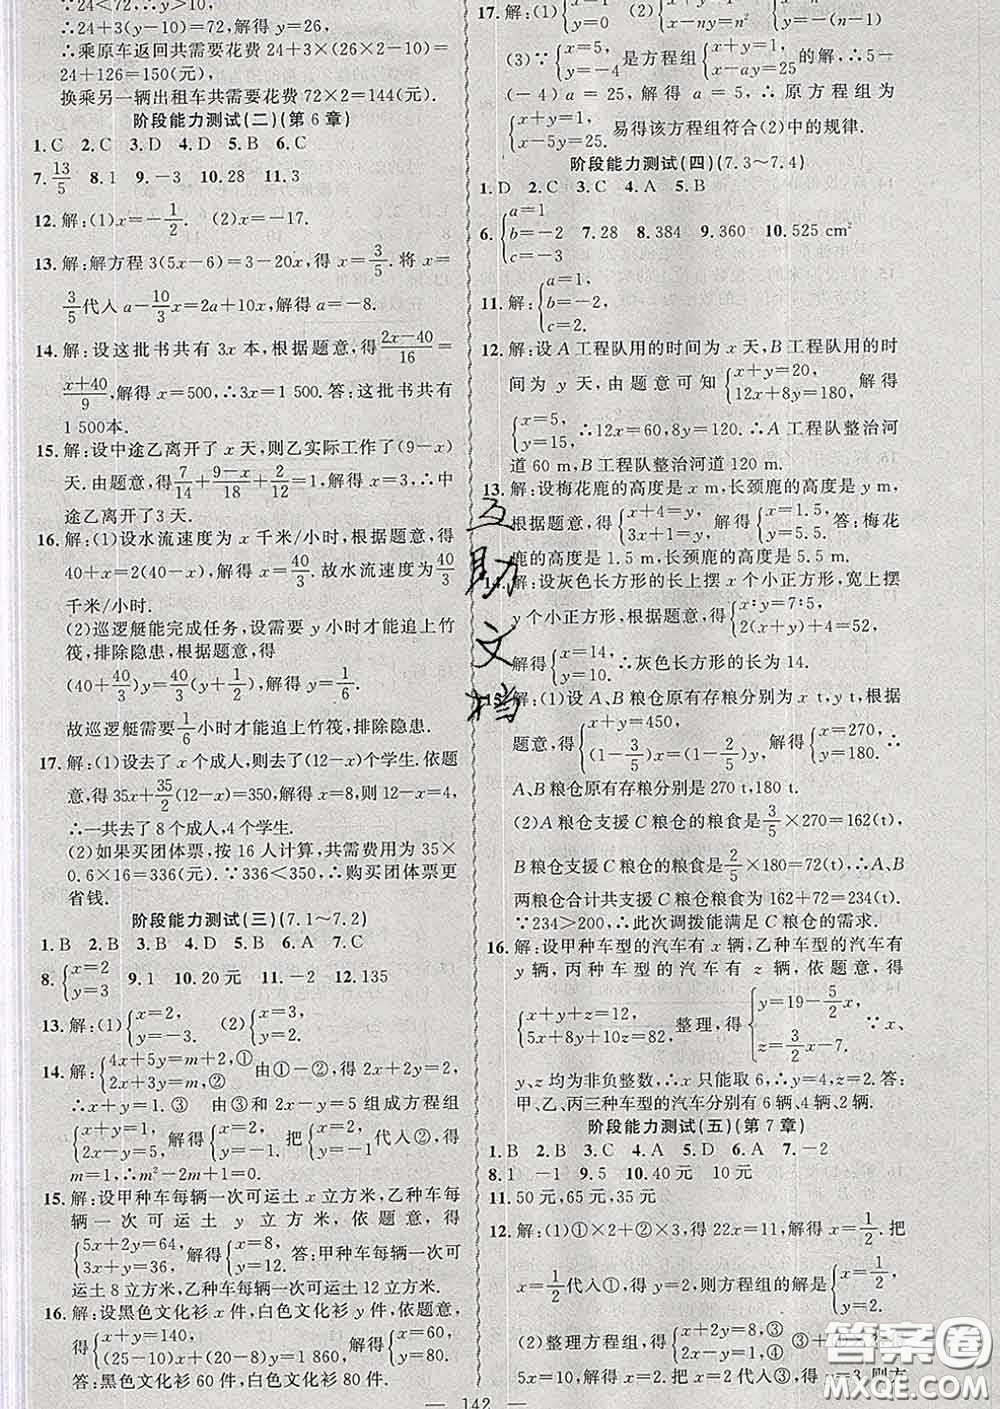 72. ∵24>7.2, ∴y>10.
∴24+3(y-10)=72, 解得y=26.
∴乘原车返回共需要花费 24+3×(26×2-10)=
24+126=150(元),
换乘另一辆出租车共需要花费 72×2=144(元).
阶段能力测试(二)(第6章)
1.C 2.C 3.C 4.D 5.B 6.C
7. 13/5 8.1 9.-3 10.28 11.3
12.解:(1)x=-1/2. (2)x=-17.
13.解:解方程 3(5x-6)=3-20x,得 x=3/5.将 x=
3/5代入 a-10/3x=2a+10x,解得 a=-8.
14.解:设这批书共有 3x 本,根据题意,得(2x-40)/16=
(x+40)/9,解得 x=500,∴3x=1 500.答:这批书共有
1 500本.
15.解:设中途乙离开了 x 天,则乙实际工作了(9-x)
天.由题意,得7/14+(9-x)/18+2/12=1,解得 x=3,∴中
途乙离开了3 天.
16.解:(1)设水流速度为 x 千米/小时,根据题意,得
40+x=2(40-x),解得 x=40/3.故水流速度为40/3
千米/小时.
(2)巡逻艇能完成任务,设需要 y 小时才能追上竹
筏,排除隐患,根据题意,得
(40+40/3)y=(40/3+40/3),解得 y=1/6.
故巡逻艇需要1/6小时才能追上竹筏,排除隐患.
17.解:(1)设去了 x 个成人,则去了(12-x)个学生.依题
意,得 35x+35/2(12-x)=350,解得 x=8,12-x=4,
∴一共去了 8 个成人,4 个学生.
(2)如果买团体票,按 16 人计算,共需费用为 35×
0.6×16=336(元).∵336<350,∴购买团体票更
省钱.
阶段能力测试(三)(7.1~7.2)
1.B 2.B 3.B 4.D 5.B 6.A 7.C
8.{x=2 y=3 9.1 10.20 元 11.-2 12.135
13.解:(1){x=2, y=-2. (2){x=3, y=-3.
14.解:{4x+5y=m+2,① 2x+3y=m,② 由①-②,得 2x+2y=2,
∴x+y=1.③ 由③和 2x-y=5 组成方程组
{x+y=1, 2x-y=5, 解得{x=2, y=-1. 把{x=2, y=-1代入②,得
m=1,∴m²-2m+1=0.
15.解:设甲种车每辆一次可运土 x 立方米,乙种车每
辆一次可运土 y 立方米,依题意,得
{5x+2y=64, 3x+y=36, 解得{x=8, y=12. 答:甲种车每辆一次可
运土 8 立方米,乙种车每辆一次可运土 12 立方米.
16.解:设黑色文化衫 x 件,白色文化衫 y 件,依题意,
得{x+y=140, (25-10)x+(20-8)y=1 860, 解得{x=60, y=80.
答:黑色文化衫 60 件,白色文化衫 80 件.
17.解:(1){x=1, y=0 {x+y=1, x-ny=n² {x=n, y=-(n-1)
(3)∵{x=5, y=-4.是方程组{x+y=1, x-ay=25的解,∴5-a×
(-4)=25,解得 a=5,∴原方程组为
{x+y=1, x-5y=25. 易得该方程组符合(2)中的规律.
阶段能力测试(四)(7.3~7.4)
1.D 2.C 3.C 4.A 5.B
6.{a=1 b=-2 c=-3 7.28 8.384 9.360 10.525 cm²
11.解:{a=1, b=-2, c=2.
12.解:设 A 工程队用的时间为 x 天,B 工程队用的时
间为 y 天,由题意可知{x+y=20, 12x+8y=180, 解得
{x=5, y=15, ∴12x=60,8y=120.∴A 工程队整治河
道 60 m,B 工程队整治河道 120 m.
13.解:设梅花鹿的高度是 x m,长颈鹿的高度是 y m,
根据题意,得{x+4=y, 3x+1=y, 解得{x=1.5, y=5.5. 答:梅花
鹿的高度是 1.5 m,长颈鹿的高度是 5.5 m.
14.解:设灰色长方形的长上摆 x 个小正方形,宽上摆
y 个小正方形,根据题意,得{x:y=7:5, 2(x+y)+4=52,
解得{x=14, y=10. ∴灰色长方形的长为 14.
15.解:(1)设 A、B 粮仓原有存粮分别为 x t,y t,根据
题意,得{x+y=450, (1-3/5)x=(1-2/5)y, 解得{x=270, y=180. ∴
A、B 粮仓原有存粮分别是 270 t,180 t.
(2)A 粮仓支援 C 粮仓的粮食是3/5×270=162(t),
B 粮仓支援 C 粮仓的粮食是2/5×180=72(t),∴A、B
两粮仓合计共支援 C 粮仓粮食为 162+72=234(t).
∵234>200,∴此次调拨能满足 C 粮仓的需求.
16.解:设甲种车型的汽车有 x 辆,乙种车型的汽车有
y 辆,丙种车型的汽车有 z 辆,依题意,得
{x+y+z=12, 5x+8y+10z=82, 整理,得{y=19-5/2x, z=3/2x-7. ∵x、
y、z 均为非负整数,∴x 只能取 6.答:
甲、乙、丙三种车型的汽车分别有 6 辆,4 辆,2 辆.
阶段能力测试(五)(第 7 章)
1.B 2.B 3.C 4.B 5.D 6.A 7.-2
8.1 -1 9.5 10.40 元
11.50 元,65 元,35 元
12.解:(1)①×2+②×3,得 22x=11,解得 x=1/2.把
x=1/2代入①,得 y=2,则方程组的解是{x=1/2, y=2.
(2)整理方程组,得{x+2y=8,③
5x=10,解得 x=2.把 x=2 代入③,得 y=3.则方
— 142 —
互助文档
答案圈
MXQE.COM